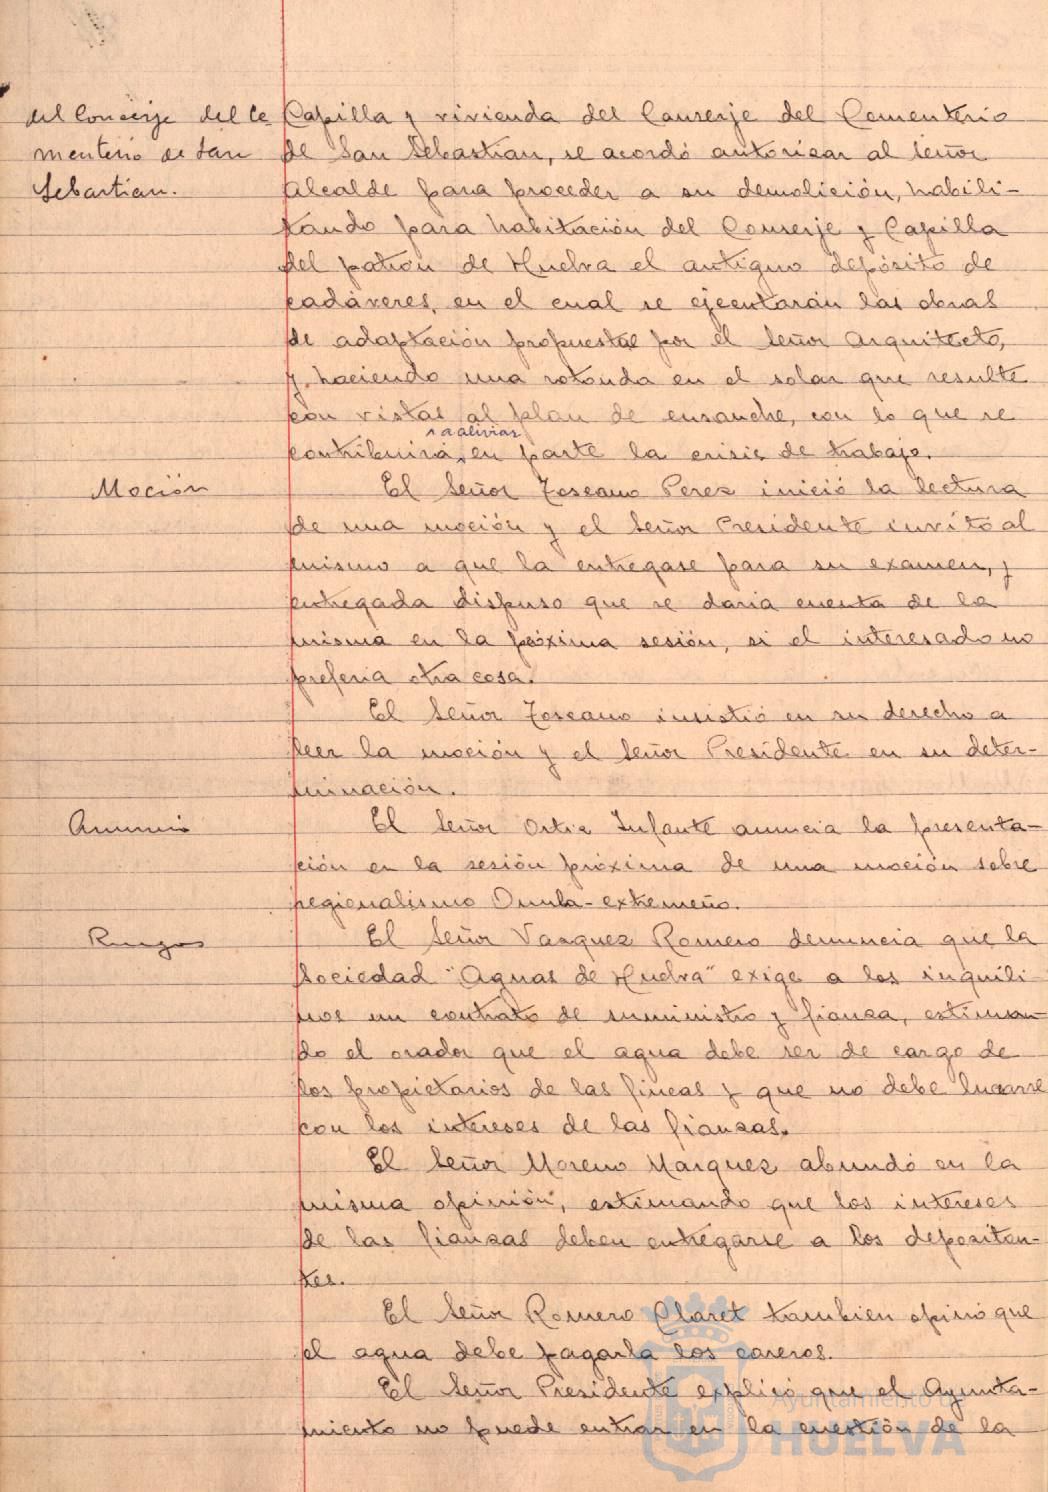 del Conserje del Ce
menterio de San
Sebastian.
Capilla y vivienda del Conserje del Cementerio
de San Sebastian, se acordó autorizar al Señor
Alcalde para proceder a su demolición, habili-
tando para habitación del Conserje y Capilla
del patrón de Huelva el antiguo depósito de
cadáveres, en el cual se ejecutarán las obras
de adaptación propuestas por el Señor Arquitecto,
y haciendo una rotonda en el solar que resulte
con vistas al plan de ensanche, con lo que se
a aliviar
contribuirá en parte la crisis de trabajo.
Moción
El Señor Toscano Perez inició la lectura
de una moción y el Señor Presidente invitó al
mismo a que la entregase para su examen, y
entregada dispuso que se daria cuenta de la
misma en la próxima sesión, si el interesado no
preferia otra cosa.
El Señor Toscano insistió en su derecho a
leer la moción y el Señor Presidente en su deter-
minación.
Anuncio
El Señor Ortiz Infante anuncia la presenta-
ción en la sesión próxima de una moción sobre
regionalismo Onubo-extremeño.
Ruegos
El Señor Vazquez Romero denuncia que la
Sociedad "Aguas de Huelva" exige a los inquili
nos un contrato de suministro y fianza, estiman
do el orador que el agua debe ser de cargo de
los propietarios de las fincas y que no debe lucrarse
con los intereses de las fianzas.
El Señor Moreno Marquez abundó en la
misma opinión, estimando que los intereses
de las fianzas deben entregarse a los depositan-
tes.
El Señor Romero Claret tambien opinó que
el agua debe pagarla los caseros.
El Señor Presidente explicó que el Ayunta-
miento no puede entrar en la cuestión de la
Ayuntamiento de
HUELVA